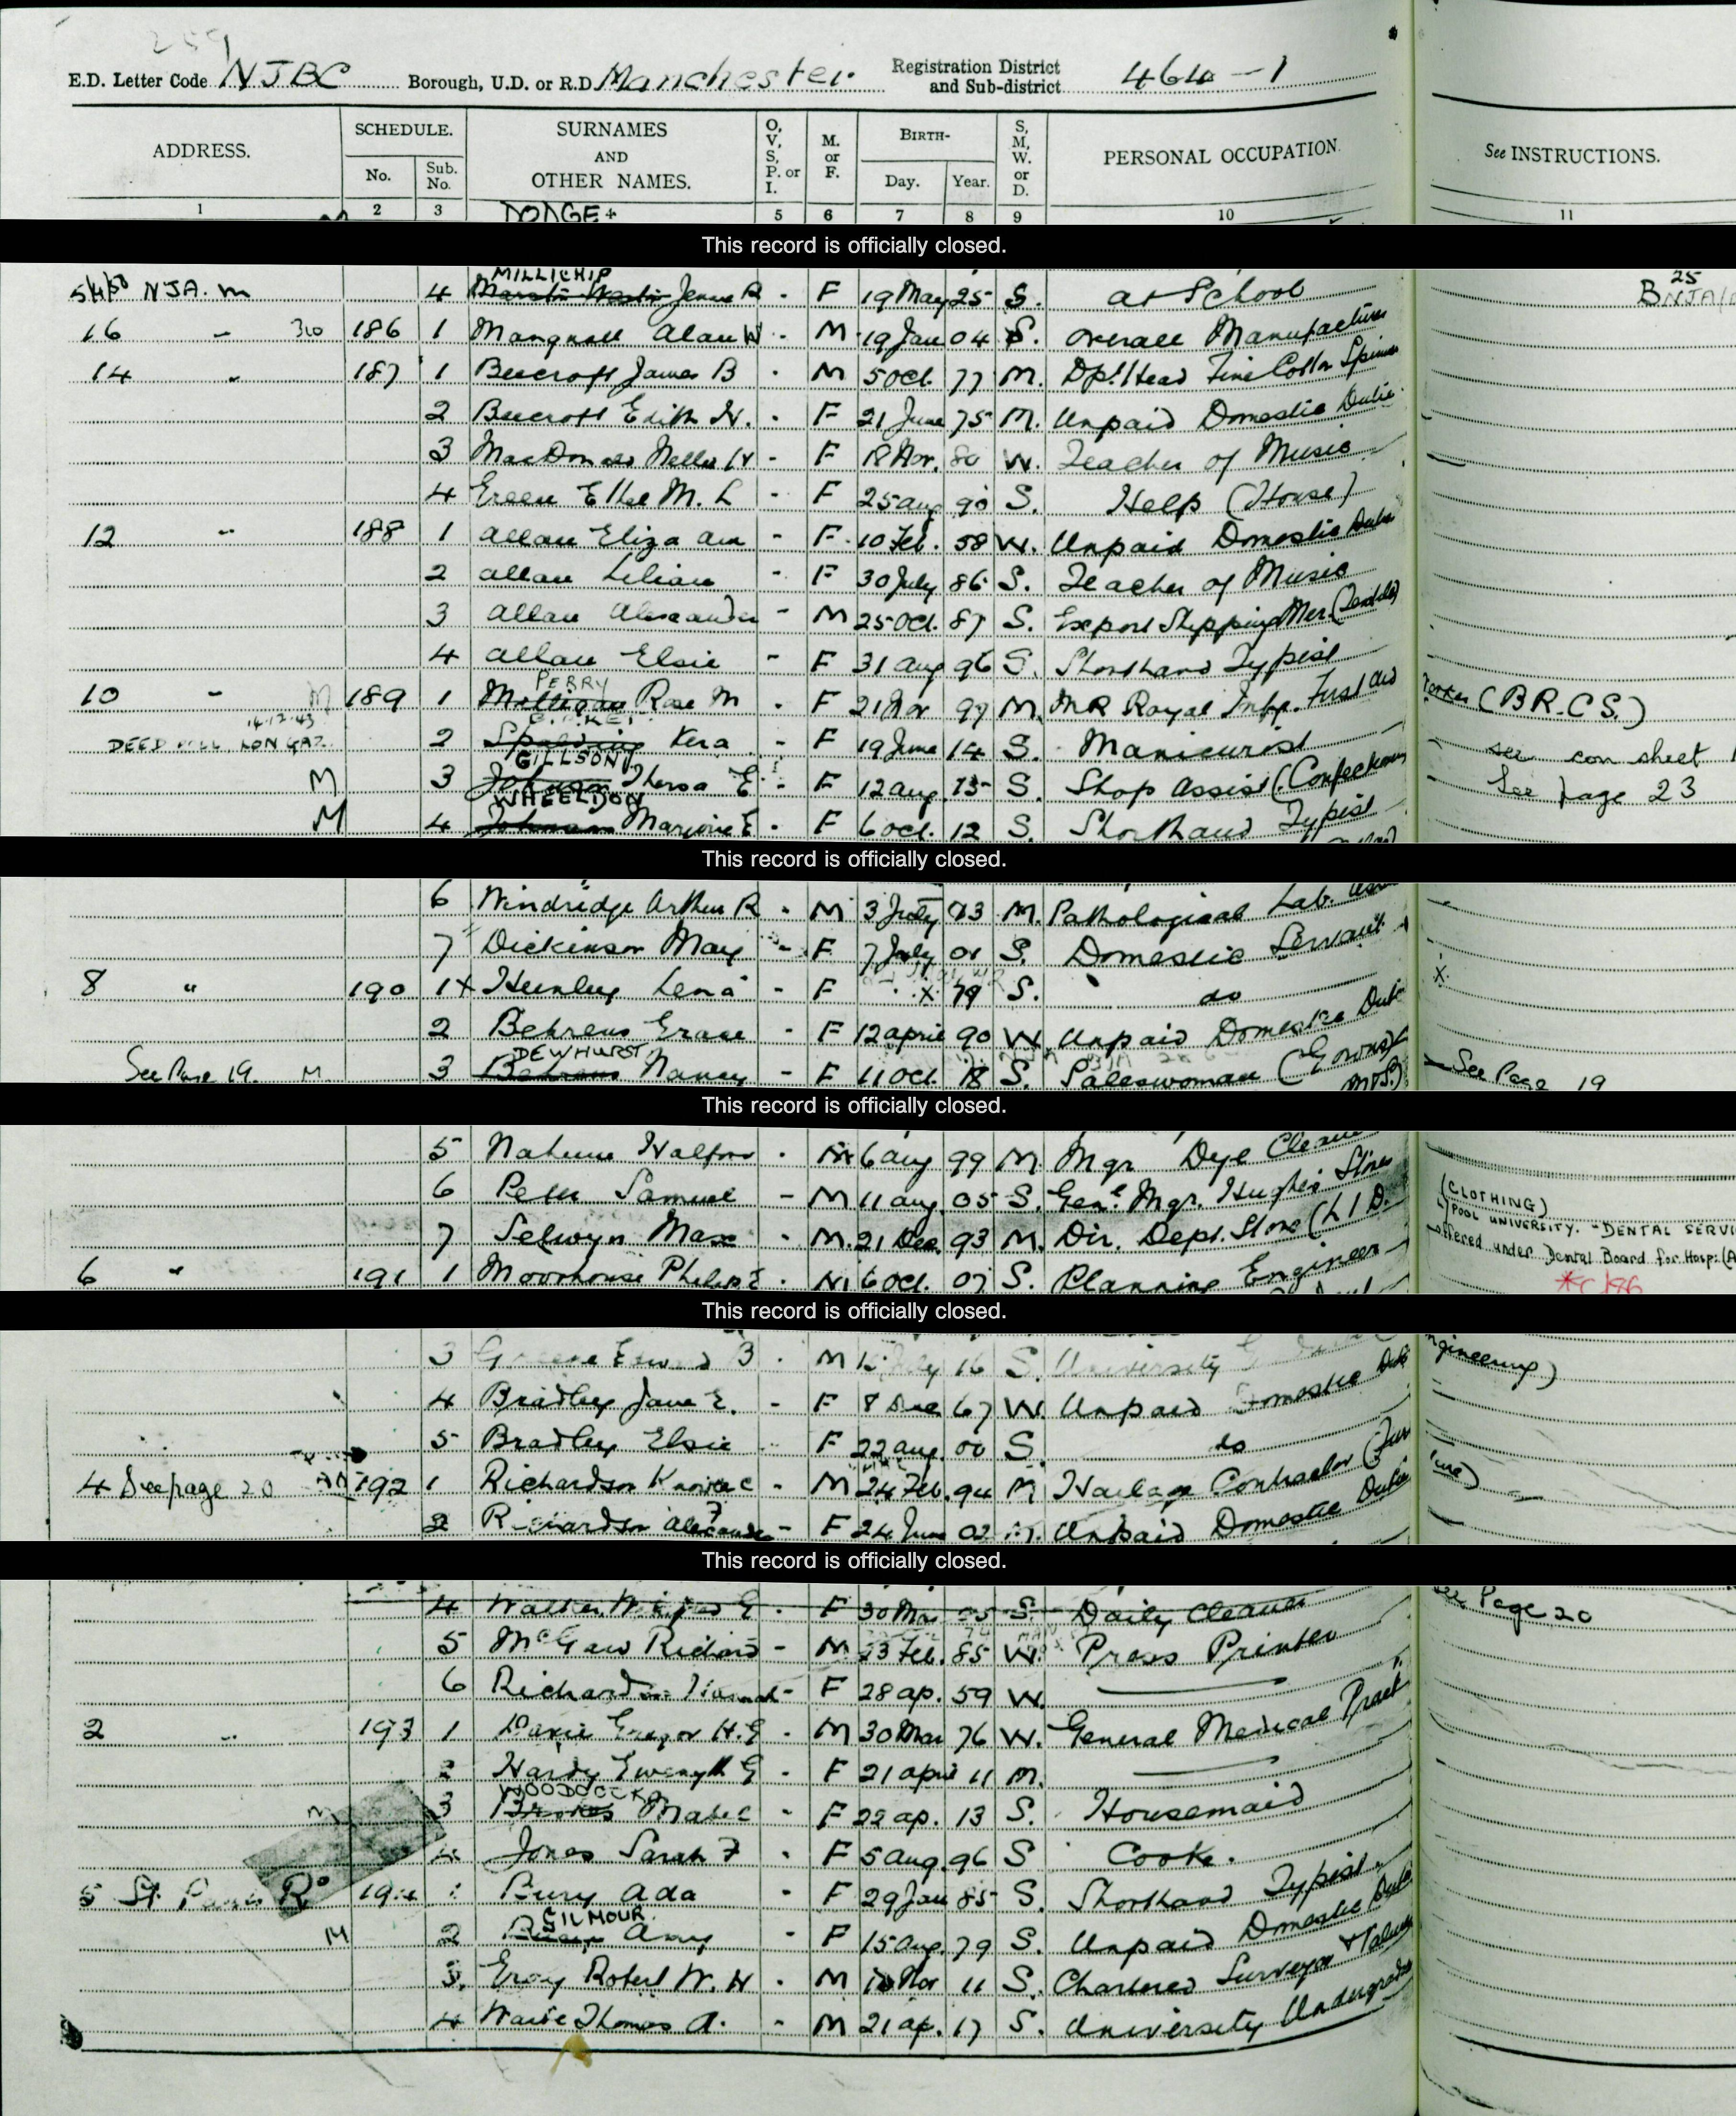 E.D. Letter Code NJBC Borough, U.D. or R.D. Manchester Registration District and Sub-district 464-1
ADDRESS. SCHEDULE. No. Sub. No. SURNAMES AND OTHER NAMES. O, V, S, P. or I. M. or F. BIRTH- Day. Year. S, M, W. or D. PERSONAL OCCUPATION. See INSTRUCTIONS.
1 2 3 5 6 7 8 9 10 11
This record is officially closed.
NJA. M 4 MILLICHIP R - F 19 May 25 S. at School 25
16 " 310 186 1 Mangnall Alan W - M 19 Jan 04 S. Overall Manufacturer
14 " 187 1 Beecroft James B - M 5 Oct. 77 M. Dpt. Head Fine Cotton
2 Beecroft Edith - F 21 June 75 M. Unpaid Domestic Duties
3 MacDonald Nellie - F 18 Nov. 80 W. Teacher of Music
4 Ethel M. L - F 25 Aug 90 S. Help (House)
12 " 188 1 Allan Eliza Ann - F 10 Feb. 58 W. Unpaid Domestic Duties
2 Allan Lilian - F 30 July 86 S. Teacher of Music
3 Allan Alexander - M 25 Oct. 87 S. Export Shipping Mer. (Textile)
4 Allan Elsie - F 31 Aug 96 S. Shorthand Typist
10 " M 189 1 PERRY Milligan Rose M - F 21 Nov 97 M. First Aid (B.R.C.S.)
14.12.43 DEED POLL LON GAZ. 2 Spalding Vera - F 19 June 14 S. Manicurist see con sheet
M 3 GILLSON Johnson E - F 12 Aug. 15 S. Shop Assist (Confectionery See page 23
M 4 WHEELDON Johnson Marjorie E - F 6 Oct. 12 S. Shorthand Typist
This record is officially closed.
6 Windridge Arthur R - M 3 July 93 M. Pathological Lab.
7 Dickinson May - F 7 July 01 S. Domestic Servant
8 " 190 1 X Lena - F X 79 S. do X
2 Behrens Grace - F 12 April 90 W. Unpaid Domestic Duties
See Page 19. M. 3 DEWHURST Behrens Nancy - F 11 Oct. 18 S. Saleswoman (Gowns) See Page 19
This record is officially closed.
5 - M 6 Aug 99 M Mgr Dye
6 Samuel - M 11 Aug. 05 S. Genl. Mgr. Hughes Stores (CLOTHING)
7 Selwyn Max - M. 21 Dec. 93 M. Dir. Dept. Store (L.I.D. L'POOL UNIVERSITY. - DENTAL
offered under Dental Board for Hosp: (A
6 " 191 1 Moorhouse Philip E - M 6 Oct. 07 S. Planning Engineer
This record is officially closed.
3 B - M July 16 S. University ngineering)
4 Bradley Jane E. - F 8 Dec 67 W. Unpaid Domestic Duties
5 Bradley Elsie F 22 Aug. 00 S. do
4 See page 20 192 1 Richardson - M 24 Feb. 94 M Haulage Contractor
2 Richardson - F 24 June 02 M. Unpaid Domestic Duties
This record is officially closed.
4 G - F 30 S Daily Cleaner See Page 20
5 McGaw Richard - M 23 Feb. 85 W. Press Printer
6 Richardson Hannah - F 28 Ap. 59 W.
2 " 193 1 H. G - M 30 Mar 76 W. General Medical Pract
2 Hardy Gwenyth G - F 21 April 11 M.
3 WOODCOCK Brookes Mabel - F 22 Ap. 13 S. Housemaid
4 Jones Sarah F - F 5 Aug. 96 S Cook.
5 St. Rd 194 1 Bury Ada - F 29 Jan 85 S. Shorthand Typist
M 2 GILMOUR. Bury Amy - F 15 Aug. 79 S. Unpaid Domestic Duties
3. Robert W. H - M Nov 11 S. Chartered Surveyor + Valuer
4 Thomas A. - M 21 Ap. 17 S. University Undergraduate